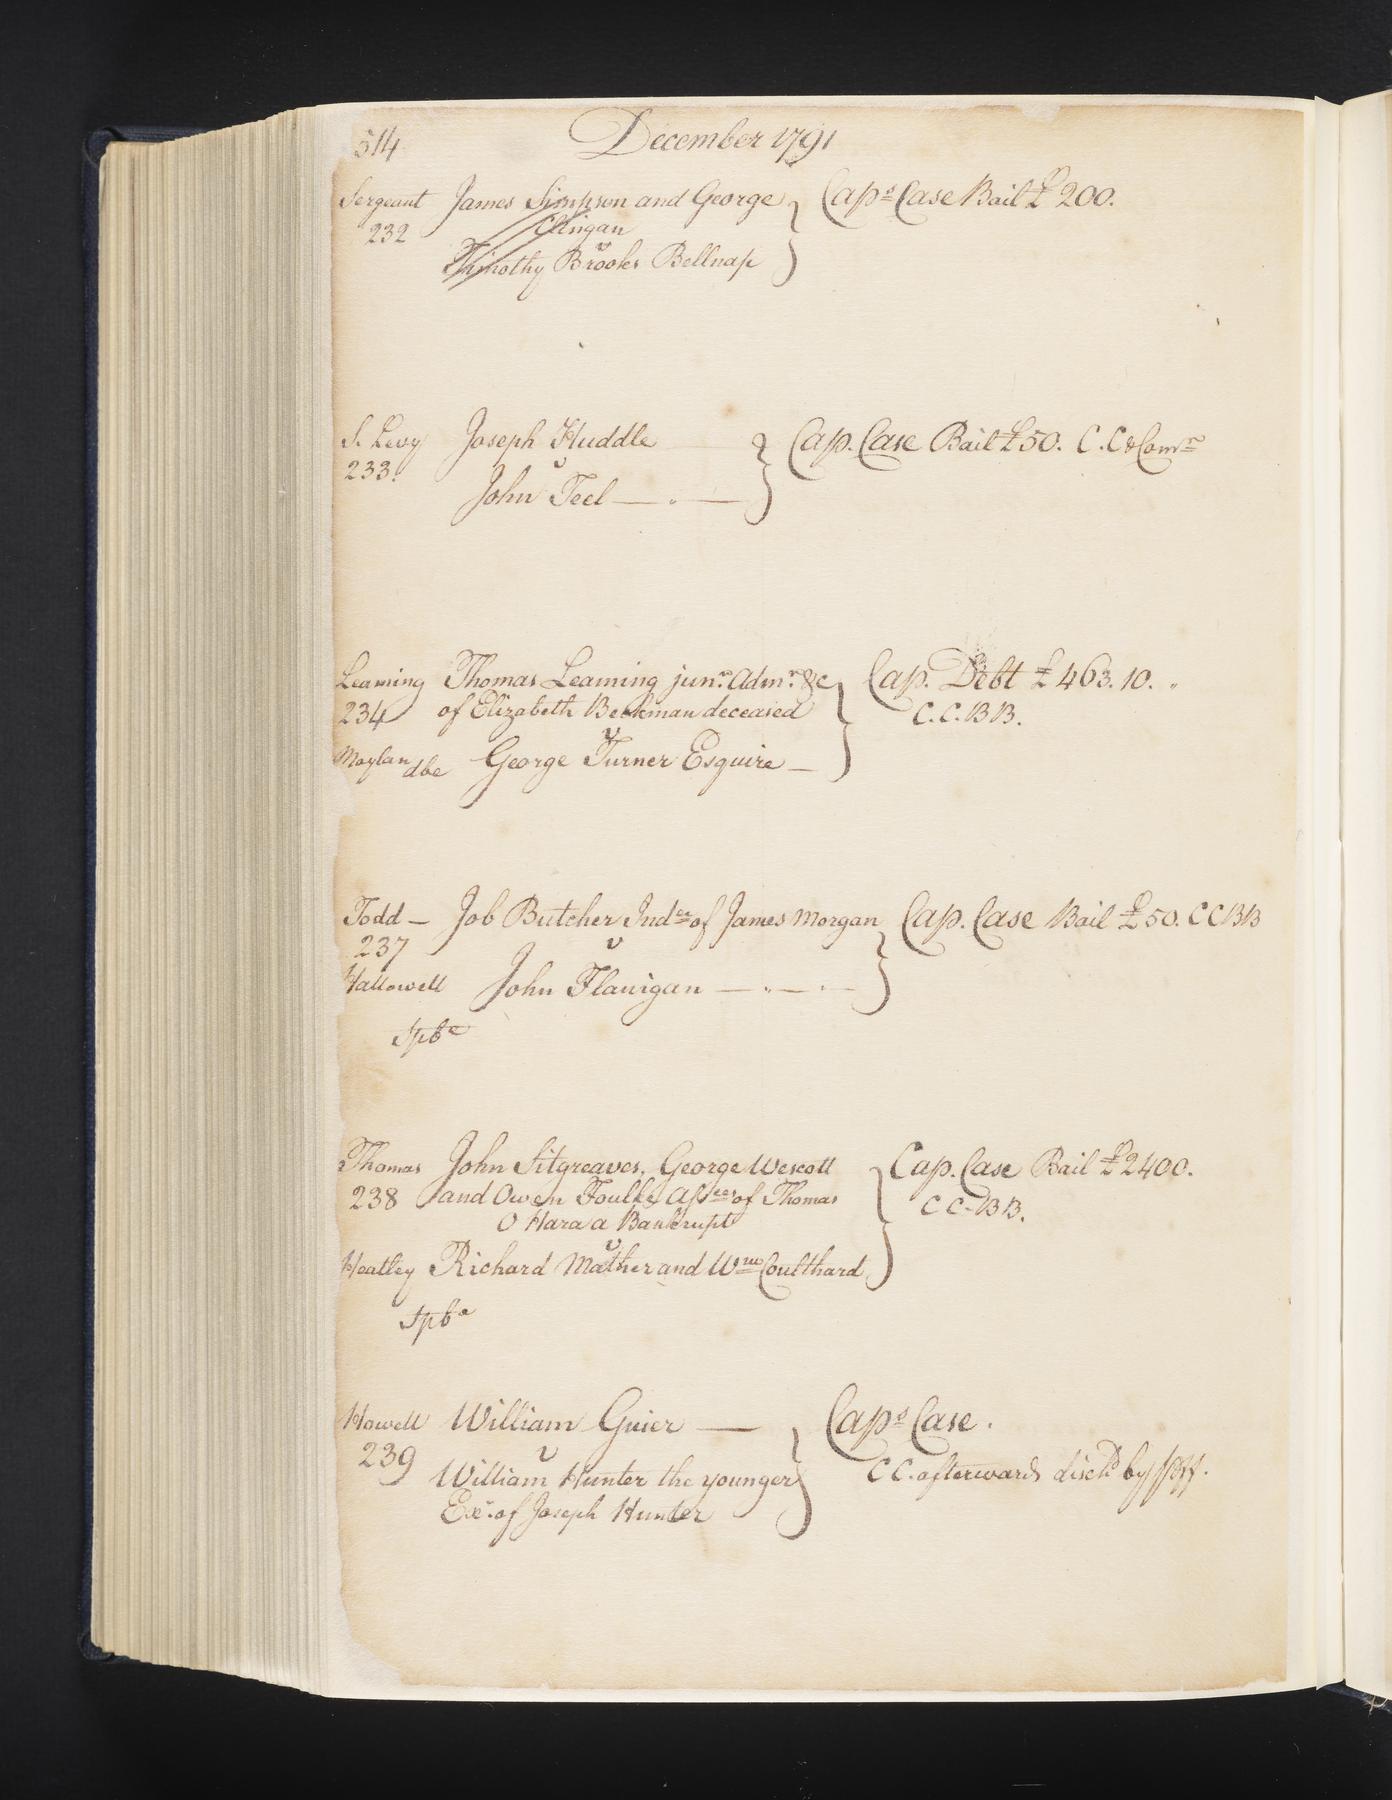 514
December 1791
Sergeant James Simpson and George Caps Case Bail £ 200.
232 Clingan
v
Timothy Brooks Bellnap
S. Levy Joseph Huddle Cap. Case Bail £50. C. C & Comrs
233. v
John Teel
Leaming Thomas Leaming junr. Admr. &c Cap. Debt £ 463. 10. "
234 of Elizabeth Beekman deceased C. C. BB.
v
Moylan dbe George Turner Esquire
Todd — Job Butcher Indee of James Morgan Cap. Case Bail £50. CCBB
237 v
Hallowell John Flanigan
Spba
Thomas John Sitgreaves, George Wescott Cap. Case Bail £2400.
238 and Owen Foulke Assees of Thomas C C. BB.
O Hara a Bankrupt
v
Heatley Richard Mather and Wm Coulthard
Spba
Howell William Guier — Caps Case.
239 v
William Hunter the younger C C. afterwards dischd by
Exr. of Joseph Hunter